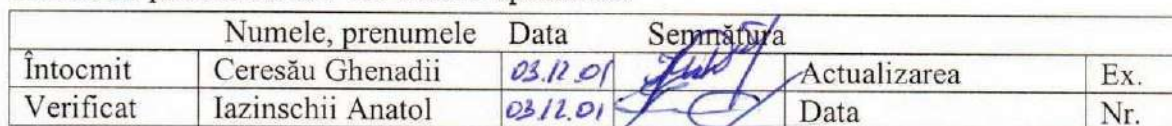 Numele, prenumele Data Semnătura
Întocmit Ceresău Ghenadii 03.12.01 Actualizarea Ex.
Verificat Iazinschii Anatol 03.12.01 Data Nr.